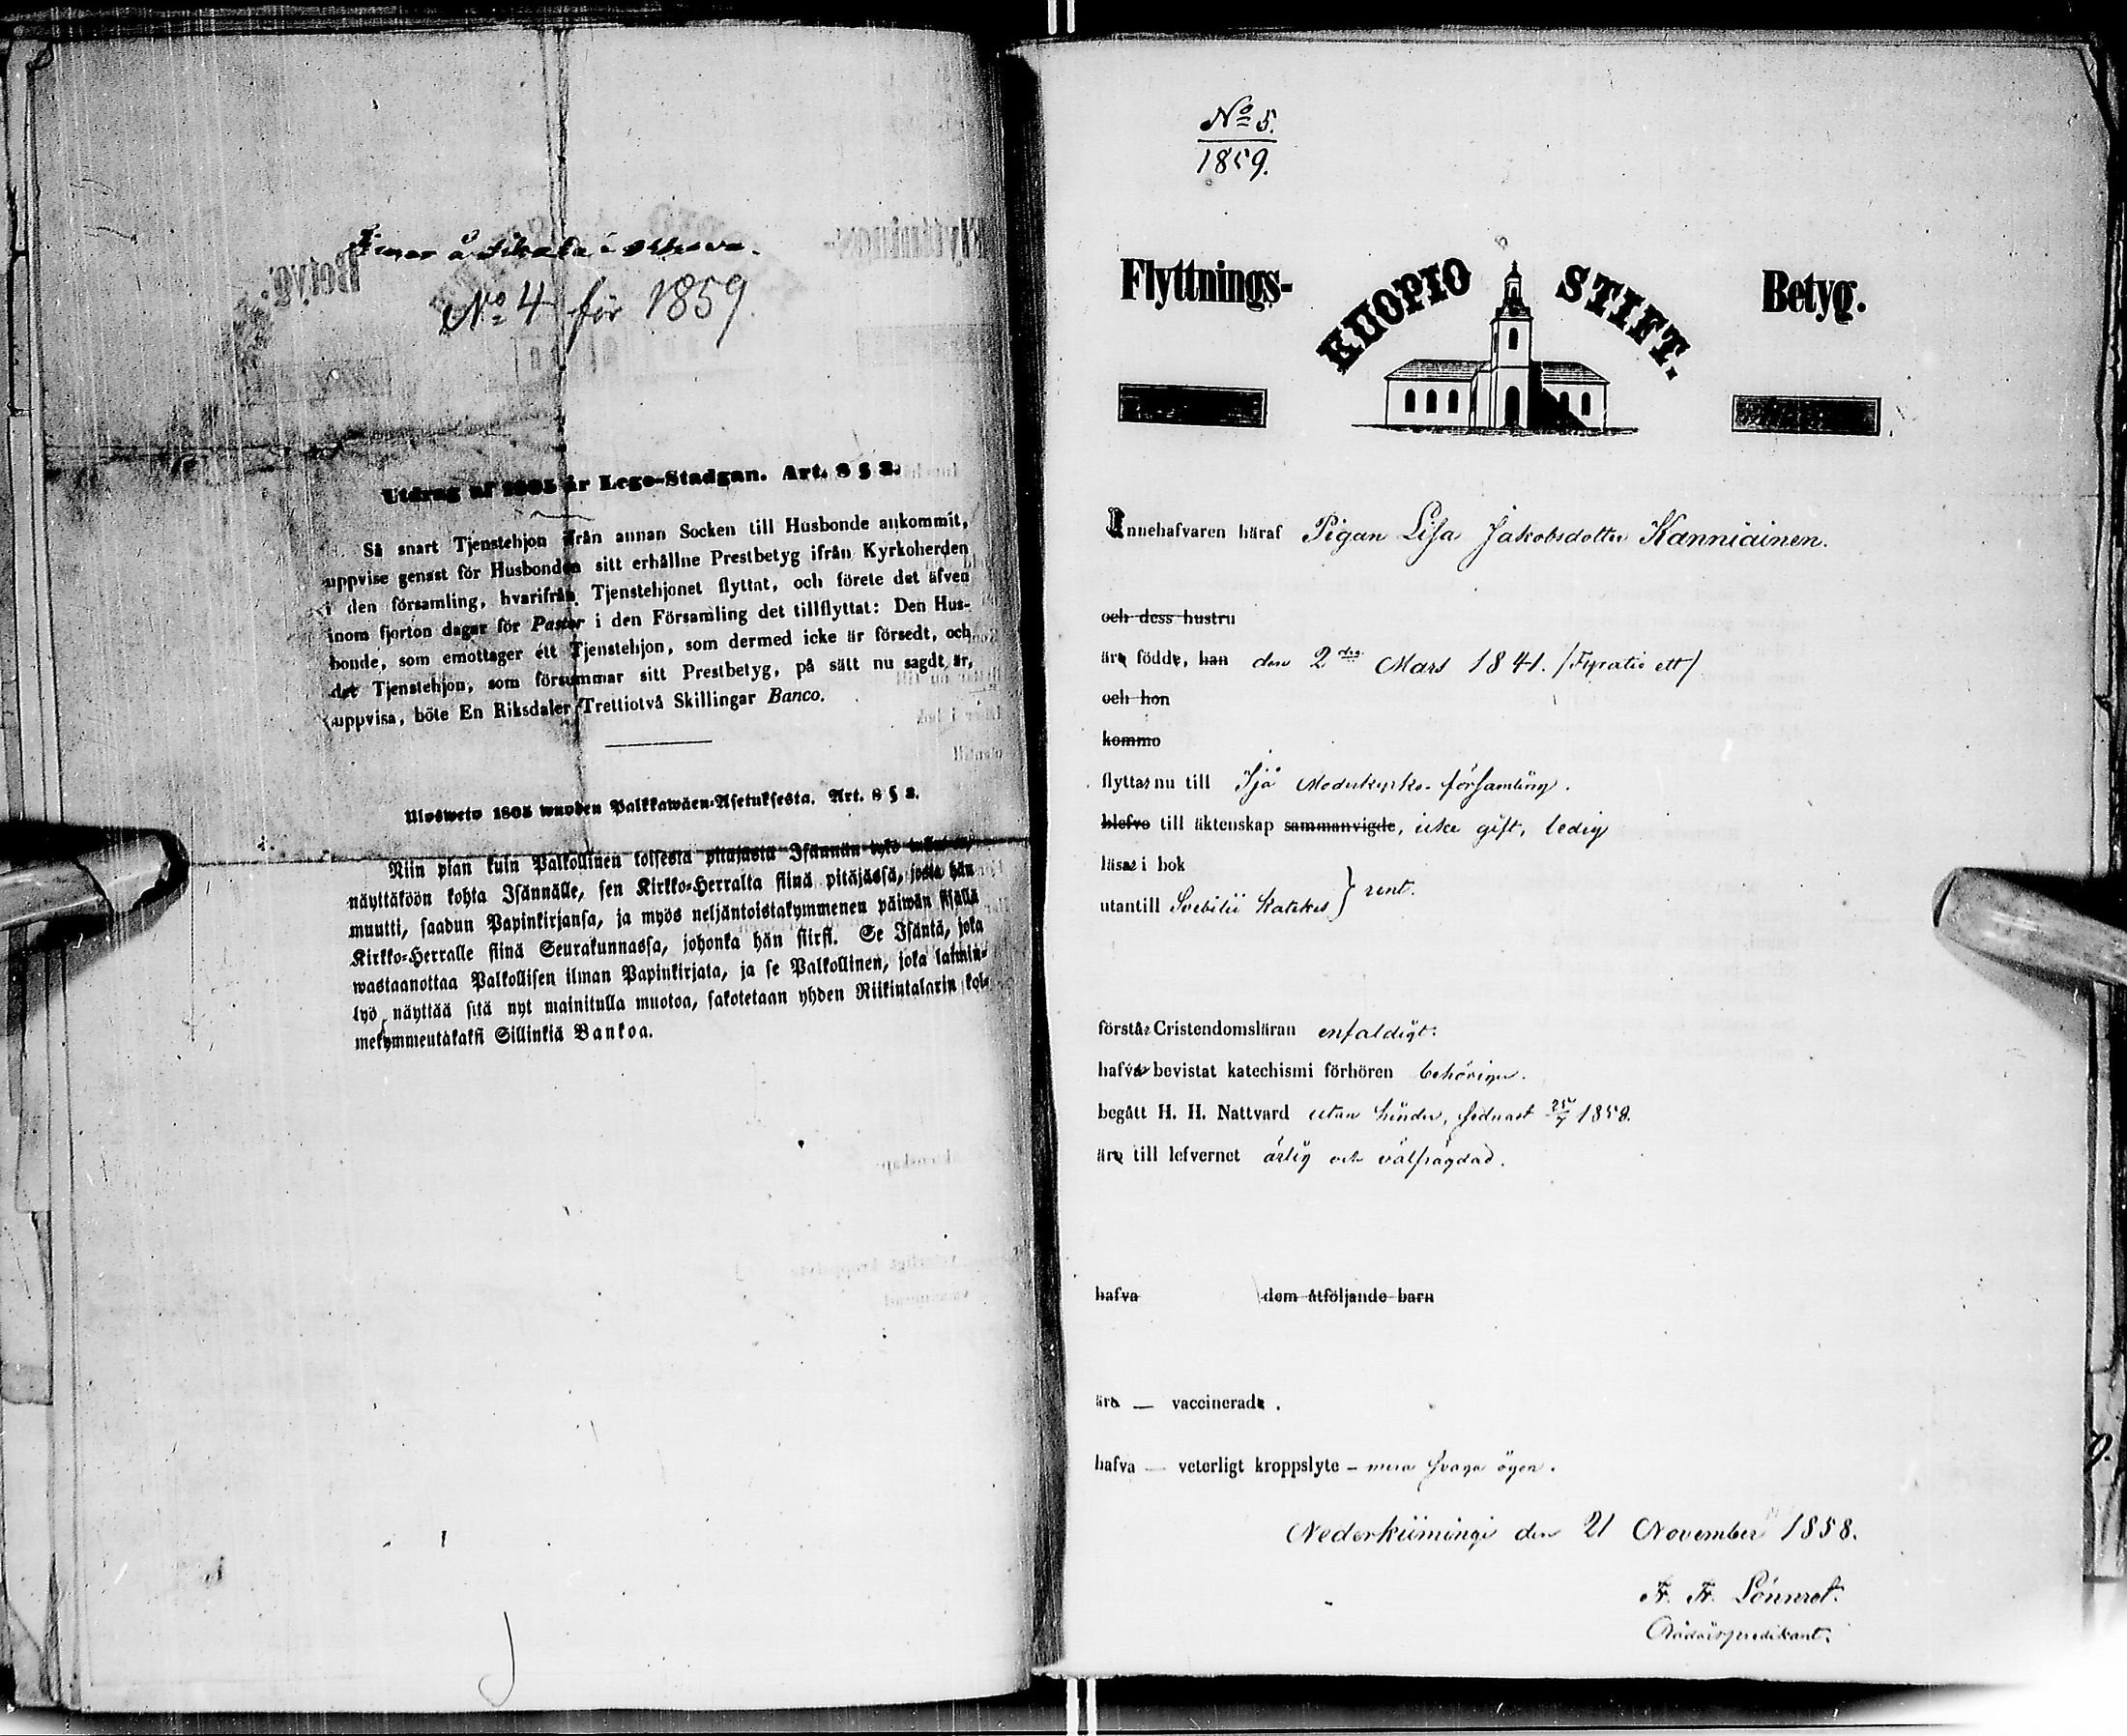 No 4 för 1859.
Utdrag af 1805 år Lego-Stadgan. Art. 8 § 2.
Så snart Tjenstehjon ifrån annan Socken till Husbonde ankommit,
uppvise genast för Husbonden sitt erhållne Prestbetyg ifrån Kyrkoherden
i den församling, hvarifrån Tjenstehjonet flyttat, och förete det äfven
inom fjorton dagar för Pastor i den Församling det tillflyttat: Den Hus-
bonde, som emottager ett Tjenstehjon, som dermed icke är försedt, och
det Tjenstehjon, som försummar sitt Prestbetyg, på sätt nu sagdt är,
uppvisa, böte En Riksdaler Trettiotvå Skillingar Banco.
Ulosweto 1805 wuoden Palkkawäen-Asetuksesta. Art. 8 § 2.
Niin pian kuin Palkollinen toisesta pitäjästä Isännän tykö
näyttäköön kohta Isännälle, sen Kirkko-Herralta siinä pitäjässä, josta hän
muutti, saadun Papinkirjansa, ja myös neljäntoistakymmenen päiwän sisällä
Kirkko-Herralle siinä Seurakunnassa, johonka hän siirsi. Se Isäntä, joka
wastaanottaa Palkollisen ilman Papinkirjata, ja se Palkollinen, joka laimin-
lyö näyttää sitä nyt mainitulla muotoa, sakotetaan yhden Riikintalarin kol-
mekymmentäkaksi Sillinkiä Bankoa.
No 5.
1859.
Flyttnings- KUOPIO STIFT. Betyg.
Innehafvaren häraf Pigan Lisa Jakobsdotter Kanniainen.
och dess hustru
äro födde, han den 2dra Mars 1841. /Fyratio ett/
och hon
kommo
flyttar nu till Ijå Moderkyrko-församling.
blefvo till äktenskap sammanvigde, icke gift, ledig
läsa i bok
utantill Svebilii Kateches } rent.
förstår Cristendomsläran enfaldigt.
hafva bevistat katechismi förhören behörigen.
begått H. H. Nattvard utan hinder, sednast 25/7 1858.
äro till lefvernet ärlig och välfrägdad.
hafva dem åtföljande barn
äro — vaccinerade.
hafva — veterligt kroppslyte - mera svaga ögon.
Nederkiimingi den 21 November 1858.
Fr. Fr. Lönnrot.